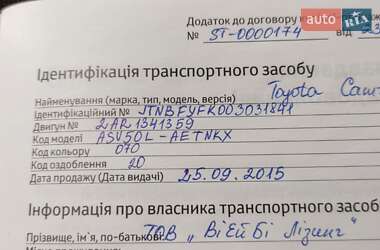 Додаток до договору к
AUTO RIA
№ ST-0000174 від 23
Ідентифікація транспортного засобу
Найменування (марка, тип, модель, версія) Toyota Cam
Ідентифікаційний № JTNBFYFK003031841
Двигун № 2AR1341359
Код моделі ASV50L-AETNKX
Код кольору 070
Код оздоблення 20
Дата продажу (Дата видачі) 25.09.2015
Інформація про власника транспортного засоб
Прізвище, ім'я, по-батькові: ТОВ „Ві Ей Бі Лізинг"